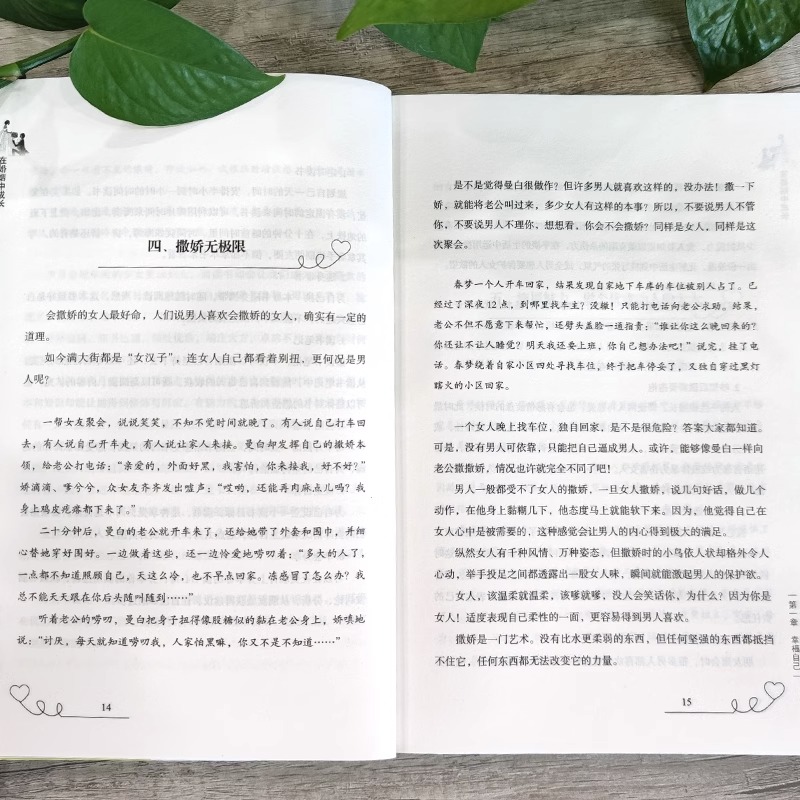 在婚姻中成长
四、撒娇无极限
会撒娇的女人最好命，人们说男人喜欢会撒娇的女人，确实有一定的
道理。
如今满大街都是“女汉子”，连女人自己都看着别扭，更何况是男
人呢？
一帮女友聚会，说说笑笑，不知不觉时间就晚了。有人说自己打车回
去，有人说自己开车走，有人说让家人来接。曼白却发挥自己的撒娇本
领，给老公打电话：“亲爱的，外面好黑，我害怕，你来接我，好不好？”
娇滴滴、嗲兮兮，众女友齐齐发出嘘声：“哎哟，还能再肉麻点儿吗？我
身上鸡皮疙瘩都下来了。”
二十分钟后，曼白的老公就开车来了，还给她带了外套和围巾，并细
心替她穿好围好。一边做着这些，还一边怜爱地唠叨着：“多大的人了，
一点都不知道照顾自己，天这么冷，也不早点回家。冻感冒了怎么办？我
总不能天天跟在你后头随叫随到……”
听着老公的唠叨，曼白把身子扭得像股糖似的黏在老公身上，娇嗔地
说：“讨厌，每天就知道唠叨我，人家怕黑嘛，你又不是不知道……”
14
是不是觉得曼白很做作？但许多男人就喜欢这样的，没办法！撒一下
娇，就能将老公叫过来，多少女人有这样的本事？所以，不要说男人不管
你，不要说男人不理你，想想看，你会不会撒娇？同样是女人，同样是这
次聚会。
春梦一个人开车回家，结果发现自家地下车库的车位被别人占了。已
经过了深夜12点，到哪里找车主？没辙！只能打电话向老公求助。结果，
老公不但不愿意下来帮忙，还劈头盖脸一通指责：“谁让你这么晚回来的？
你还让不让人睡觉？明天我还要上班，你自己想办法吧！”说完，挂了电
话。春梦绕着自家小区四处寻找车位，终于把车停妥了，又独自穿过黑灯
瞎火的小区回家。
一个女人晚上找车位，独自回家，是不是很危险？答案大家都知道。
可是，没有男人可依靠，只能把自己逼成男人。或许，能够像曼白一样向
老公撒撒娇，情况也许就完全不同了吧！
男人一般都受不了女人的撒娇，一旦女人撒娇，说几句好话，做几个
动作，在他身上黏糊几下，他态度马上就能软下来。因为，他觉得自己在
女人心中是被需要的，这种感觉会让男人的内心得到极大的满足。
纵然女人有千种风情、万种姿态，但撒娇时的小鸟依人状却格外令人
心动，举手投足之间都透露出一股女人味，瞬间就能激起男人的保护欲。
女人，该温柔就温柔，该嗲就嗲，没人会笑话你，为什么？因为你是
女人！适度表现自己柔性的一面，更容易得到男人喜欢。
撒娇是一门艺术。没有比水更柔弱的东西，但任何坚强的东西都抵挡
不住它，任何东西都无法改变它的力量。
第一章 幸福自己
15